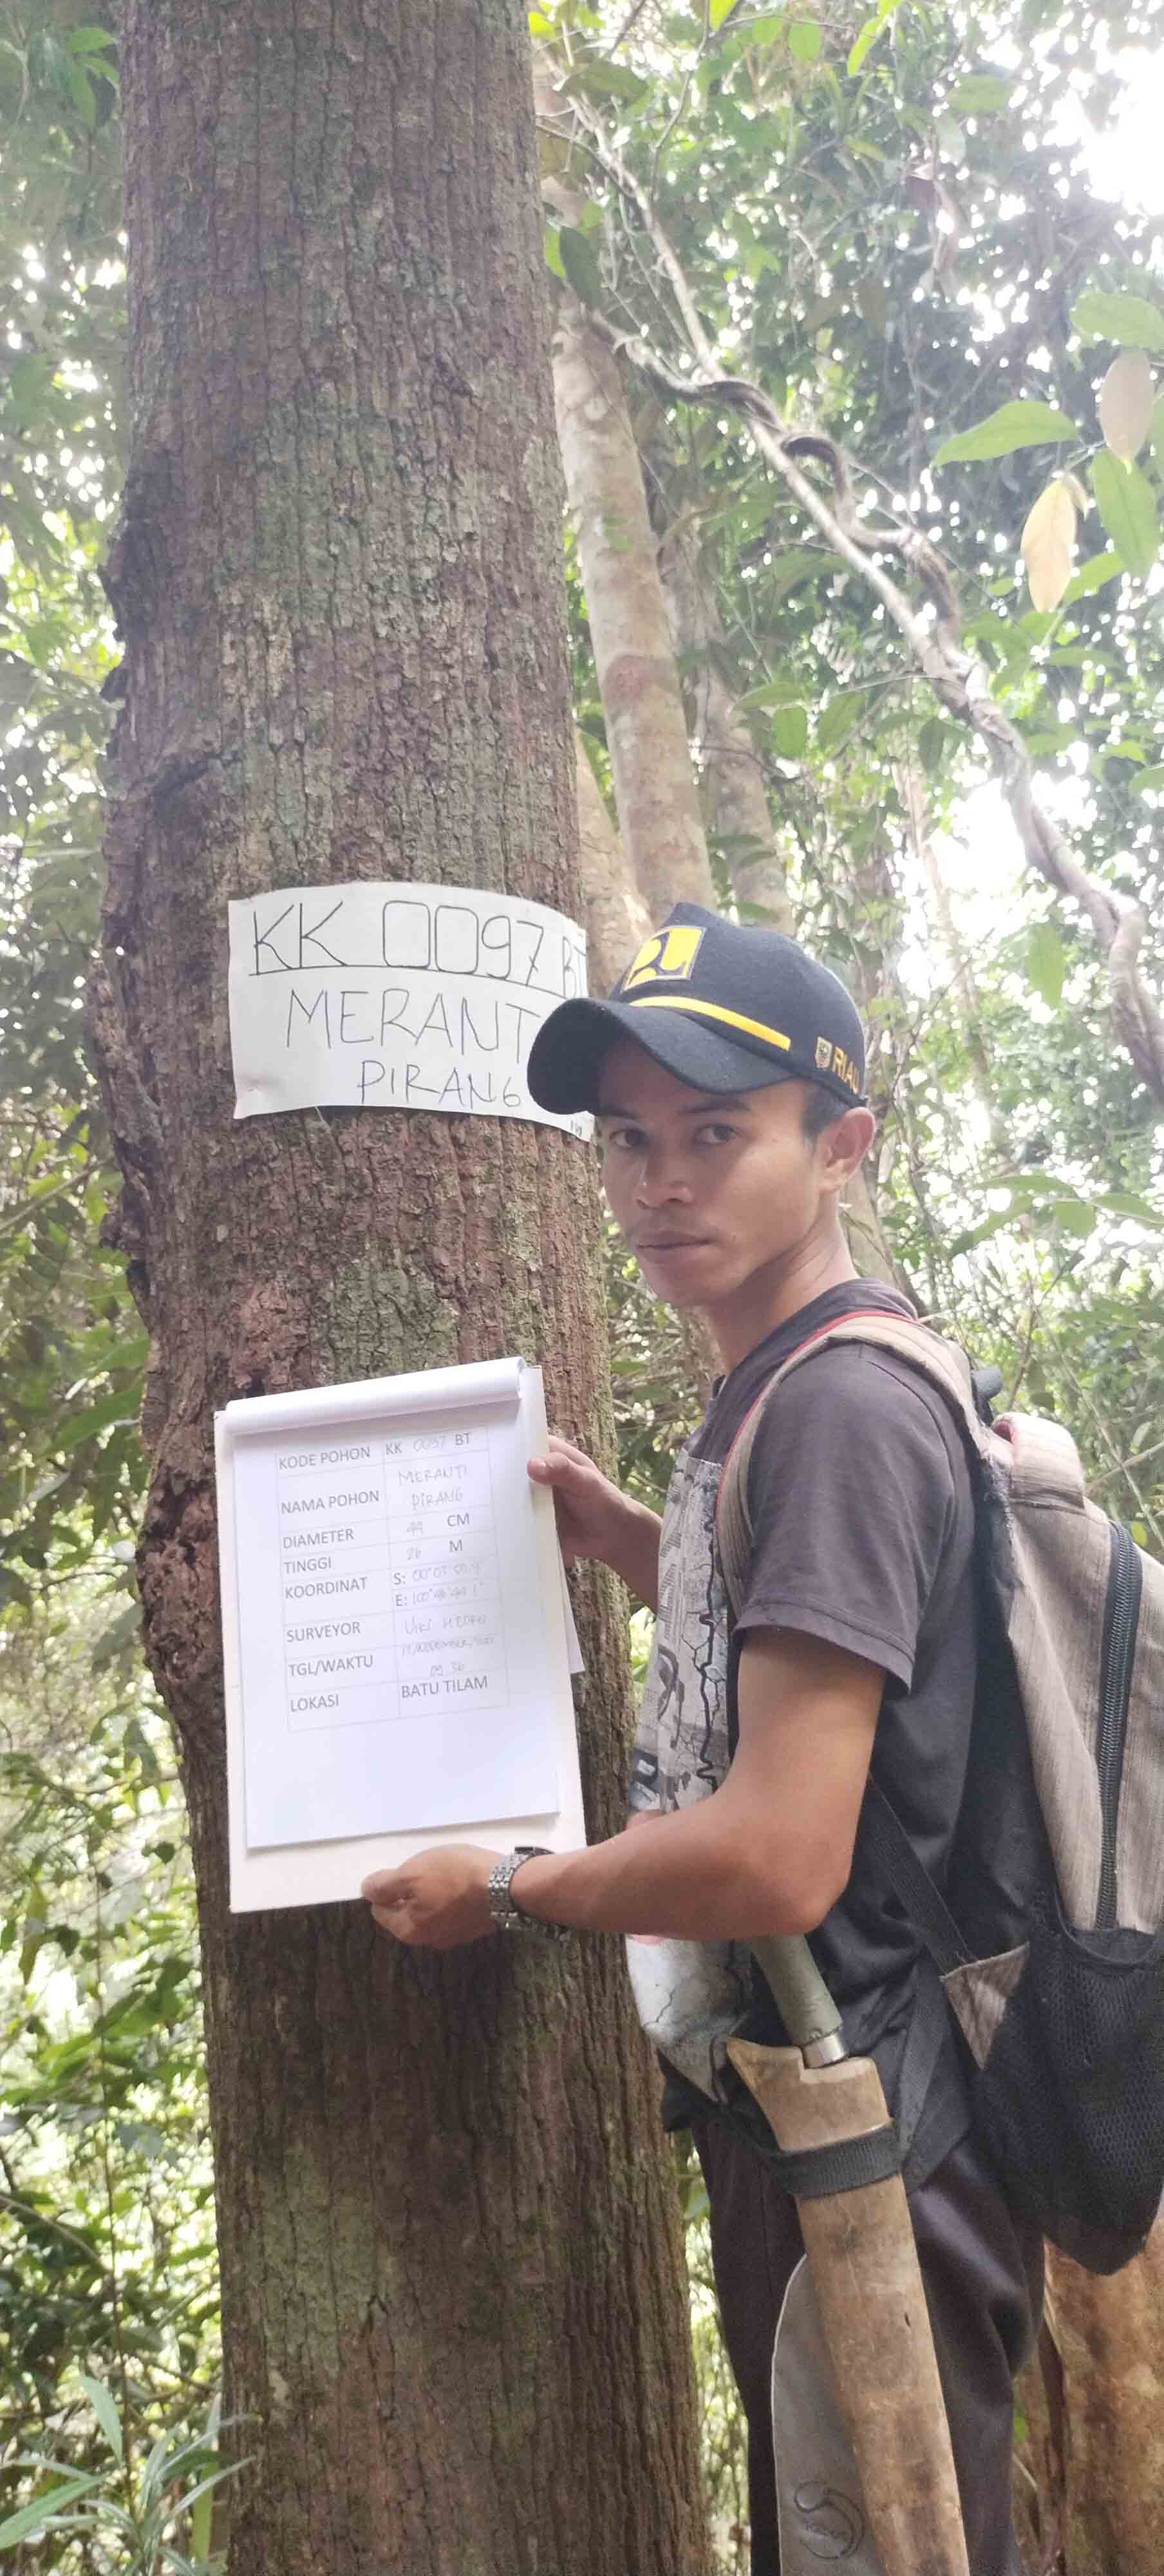 KK 0097 BT
MERANT
PIRANG
RIAU
KODE POHON KK 0097 BT
NAMA POHON MERANTI PIRANG
DIAMETER 44 CM
TINGGI 26 M
KOORDINAT S: 00°03'
E: 100°46'44
SURVEYOR
TGL/WAKTU
09 36
LOKASI BATU TILAM